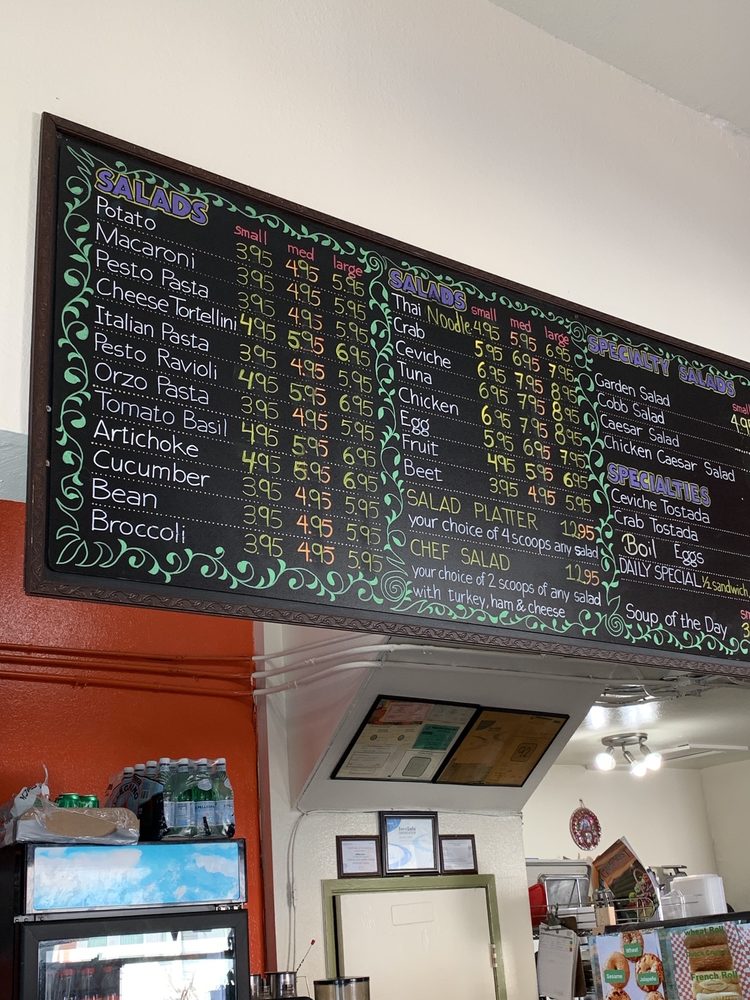 SALADS
small med large
Potato 3.95 4.95 5.95
Macaroni 3.95 4.95 5.95
Pesto Pasta 3.95 4.95 5.95
Cheese Tortellini 4.95 5.95 6.95
Italian Pasta 3.95 4.95 5.95
Pesto Ravioli 4.95 5.95 6.95
Orzo Pasta 3.95 4.95 5.95
Tomato Basil 4.95 5.95 6.95
Artichoke 4.95 5.95 6.95
Cucumber 3.95 4.95 5.95
Bean 3.95 4.95 5.95
Broccoli 3.95 4.95 5.95
SALADS
small med large
Thai Noodle 4.95 5.95 6.95
Crab 5.95 6.95 7.95
Ceviche 6.95 7.95 8.95
Tuna 6.95 7.95 8.95
Chicken 6.95 7.95 8.95
Egg 5.95 6.95 7.95
Fruit 4.95 5.95 6.95
Beet 3.95 4.95 5.95
SALAD PLATTER 12.95
your choice of 4 scoops any salad
CHEF SALAD 12.95
your choice of 2 scoops of any salad
with turkey, ham & cheese
SPECIALTY SALADS
Garden Salad
Cobb Salad
Caesar Salad
Chicken Caesar Salad
SPECIALTIES
Ceviche Tostada
Crab Tostada
Boil Eggs
DAILY SPECIAL ½ sandwich,
Soup of the Day
Wheat
Sesame
Jalapeño
Wheat Roll
French Roll